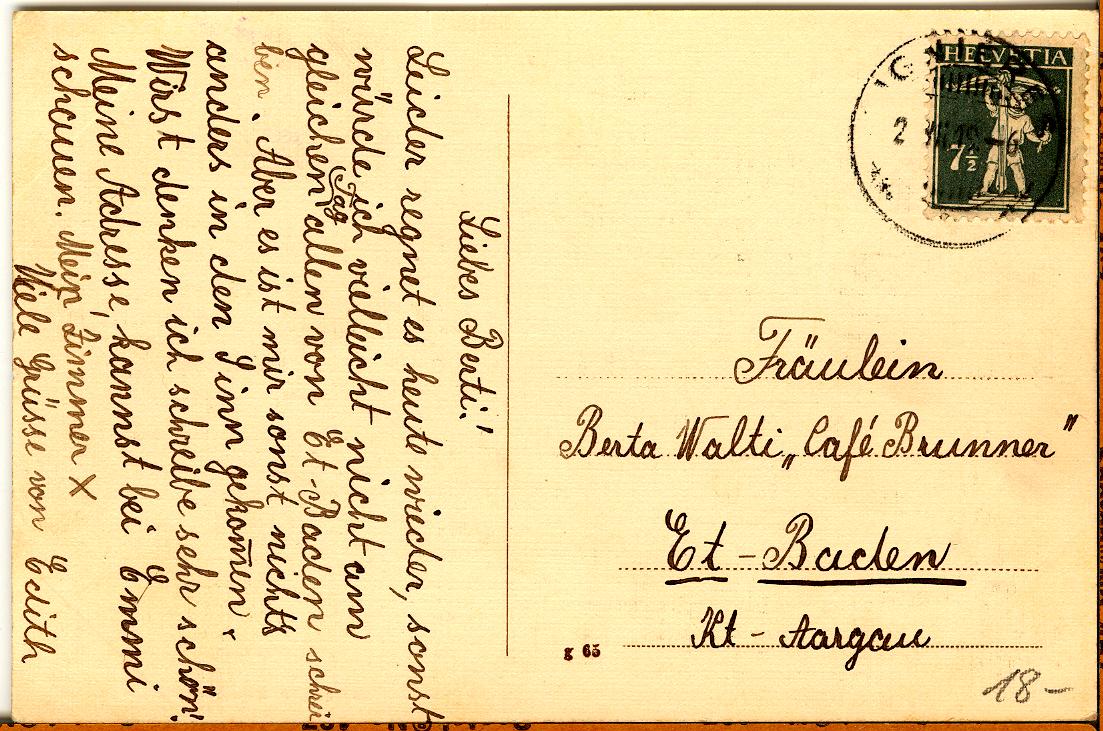 Liebes Berti!
Leider regnet es heute wieder, sonst
würde ich vielleicht nicht am
gleichen Tag allen von Et-Baden schrei
ben. Aber es ist mir sonst nichts
anders in den Sinn gekom̄en.
Wirst denken ich schreibe sehr schön!
Meine Adresse, kannst bei Emmi
schauen. Mein Zimmer X
Viele Grüsse von Edith
HELVETIA
7½
Fräulein
Berta Walti „Café Brunner"
Et-Baden
Kt-Aargau
g 65
18-